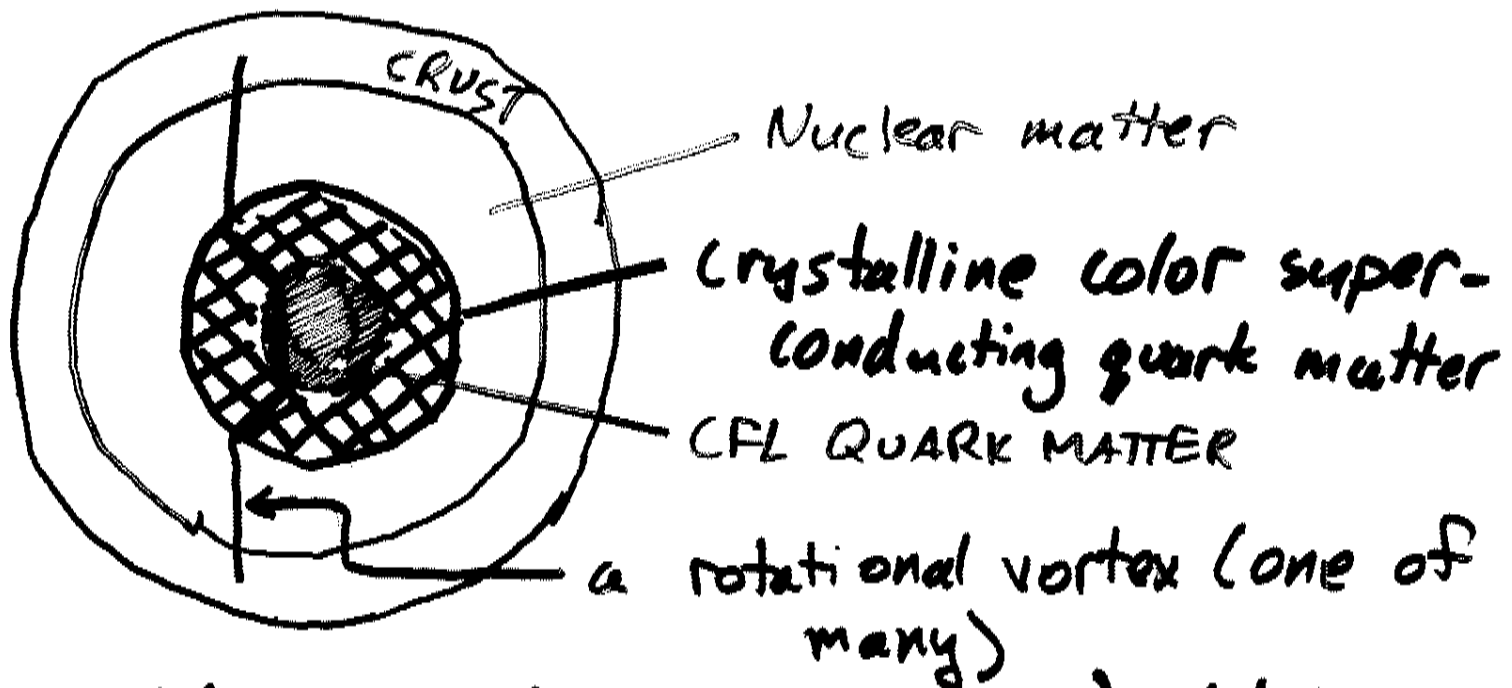 CRUST
Nuclear matter
Crystalline color super-
conducting quark matter
CFL QUARK MATTER
a rotational vortex (one of
many)